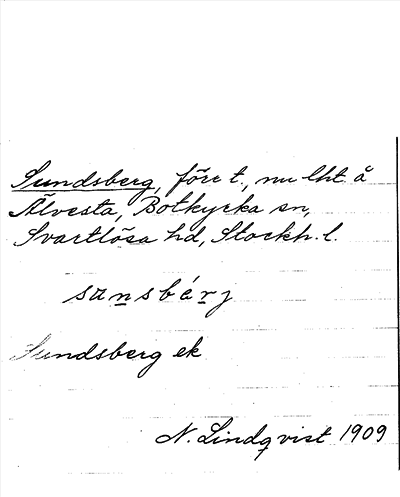 Sundsberg, före t., nu lht å
Älvesta, Botkyrka sn,
Svartlösa hd, Stockh. l.
sunsbárj
Sundsberg ek
N. Lindqvist 1909